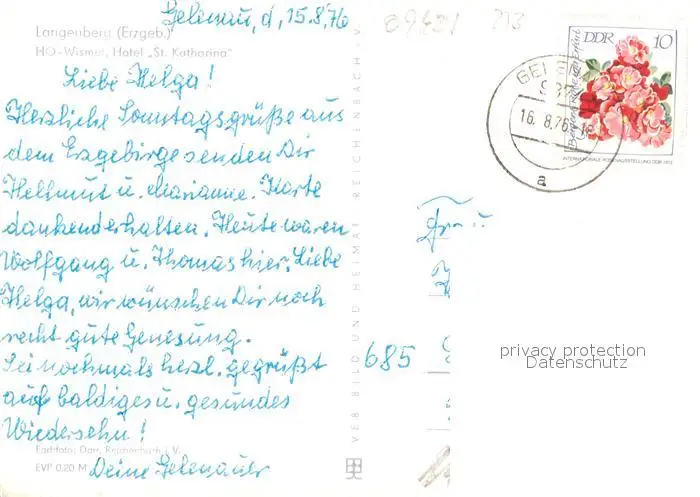 Gelenau, d, 15.8.76
Langenberg (Erzgeb.)
HO-Wismut, Hotel „St. Katharina"
Liebe Helga!
Herzliche Sonntagsgrüße aus
dem Erzgebirge senden Dir
Hellmut u. Marianne. Karte
dankend erhalten. Heute waren
Wolfgang u. Thomas hier. Liebe
Helga, wir wünschen Dir noch
recht gute Genesung.
Sei nochmals herzl. gegrüßt
auf baldiges u. gesundes
Wiedersehn!
Deine Gelenauer
EVP 0,20 M
VEB BILD UND HEIMAT REICHENBACH
DDR 10
INTERNATIONALE ROSENAUSSTELLUNG DDR 1972
16. 8.76
a
Frau
685
privacy protection
Datenschutz